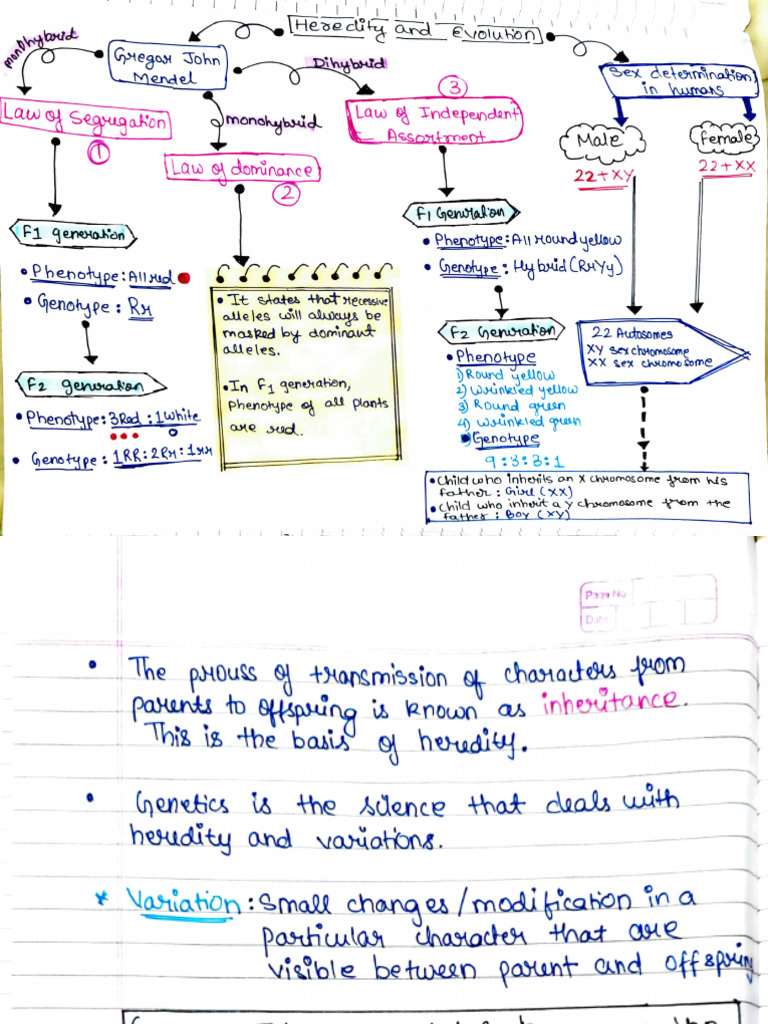 Heredity and Evolution
monohybrid
Gregor John
Mendel
Dihybrid
Sex determination
in humans
Law of Segregation
1
monohybrid
Law of dominance
2
3
Law of Independent
Assortment
Male
22+XY
Female
22+XX
F1 generation
• Phenotype: All red
• Genotype: Rr
F2 generation
• Phenotype: 3Red : 1White
• Genotype: 1RR:2Rr:1rr
• It states that recessive
alleles will always be
masked by dominant
alleles.
• In F1 generation,
Phenotype of all plants
are red.
F1 Generation
• Phenotype: All round yellow
• Genotype: Hybrid (RrYy)
F2 Generation
• Phenotype
1) Round yellow
2) Wrinkled yellow
3) Round green
4) Wrinkled green
• Genotype
9:3:3:1
22 Autosomes
XY sex chromosome
XX sex chromosome
• Child who inherits an X chromosome from his
father : Girl (XX)
• Child who inherit a y chromosome from the
father : Boy (XY)
Page No.
Date
• The process of transmission of characters from
parents to offspring is known as inheritance.
This is the basis of heredity.
• Genetics is the science that deals with
heredity and variations.
* Variation: Small changes/modification in a
particular character that are
visible between parent and offspring